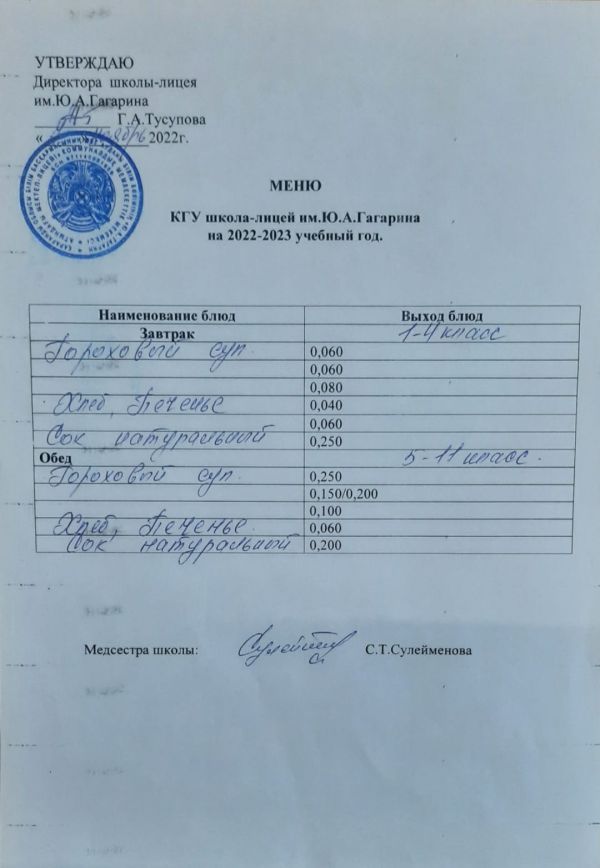 УТВЕРЖДАЮ
Директора школы-лицея
им.Ю.А.Гагарина
Г.А.Тусупова
« ноябрь 2022г.
МЕНЮ
КГУ школа-лицей им.Ю.А.Гагарина
на 2022-2023 учебный год.
Наименование блюд Выход блюд
Завтрак 1-4 класс
Гороховый суп. 0,060
0,060
0,080
Хлеб, Печенье 0,040
0,060
Сок натуральный 0,250
Обед 5-11 класс.
Гороховый суп. 0,250
0,150/0,200
0,100
Хлеб, Печенье. 0,060
Сок натуральный 0,200
Медсестра школы: С.Т.Сулейменова